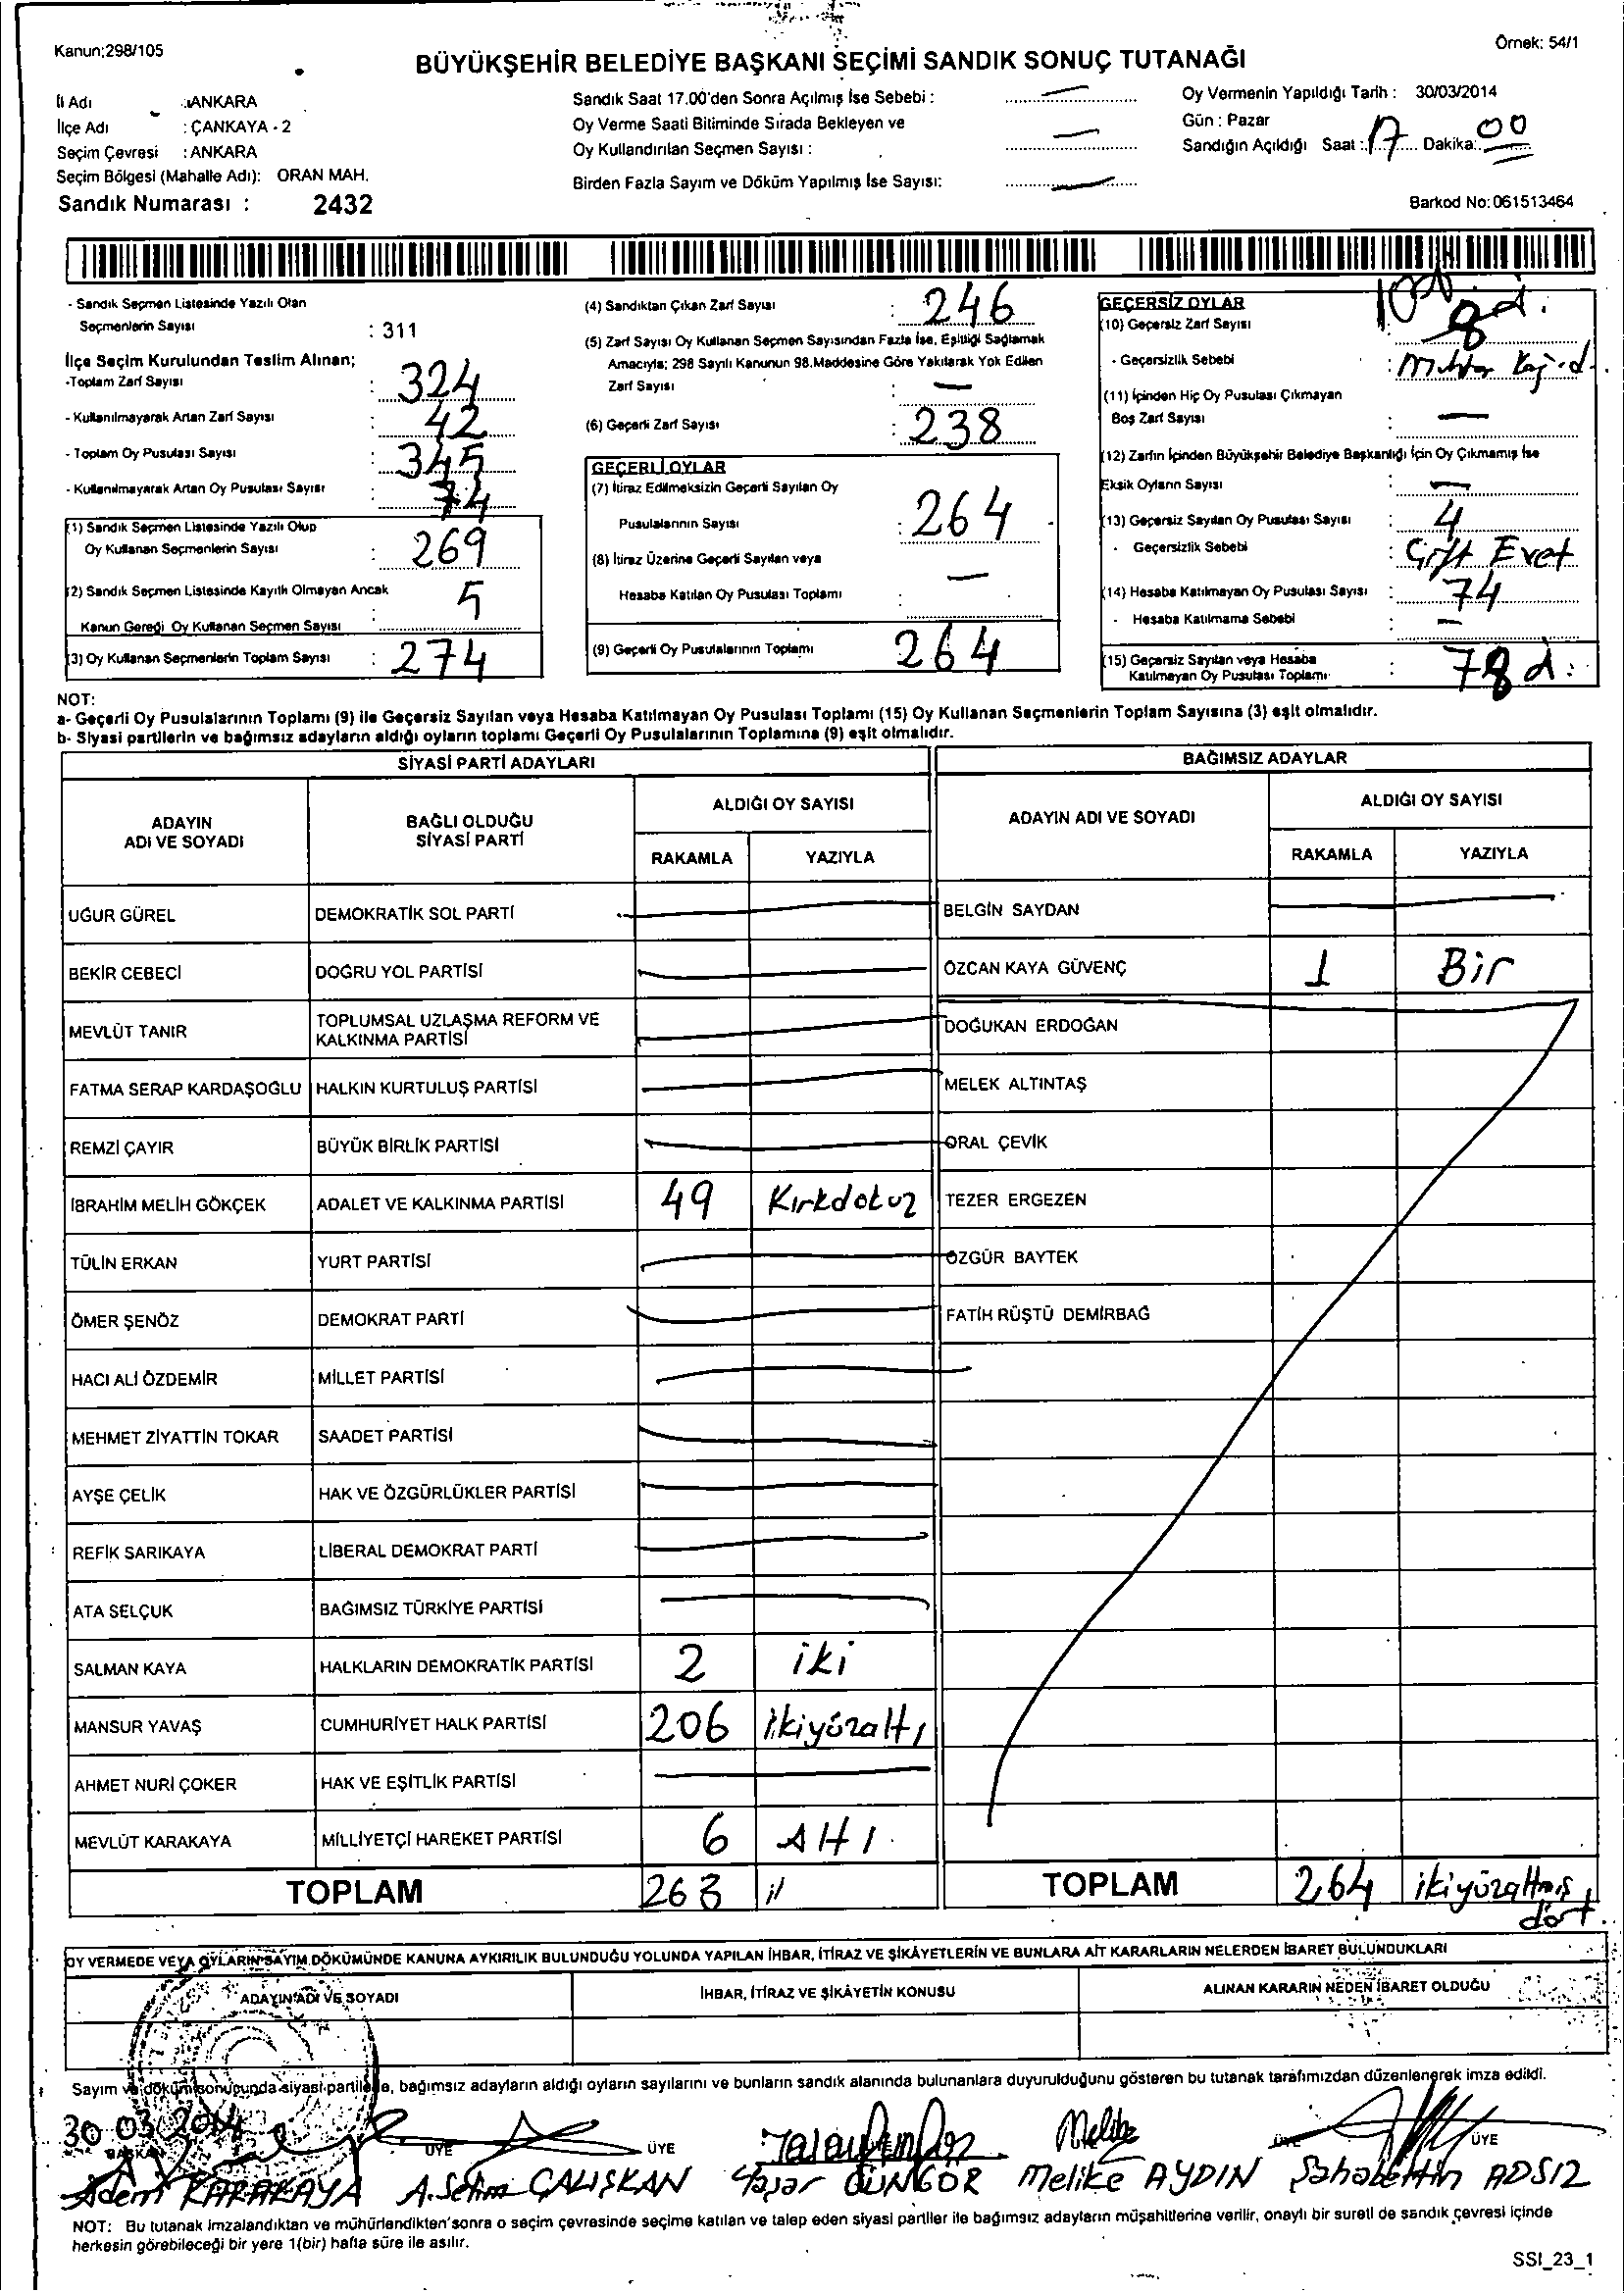 Kanun;298/105
Örnek: 54/1
BÜYÜKŞEHİR BELEDİYE BAŞKANI SEÇİMİ SANDIK SONUÇ TUTANAĞI
İl Adı :ANKARA
İlçe Adı : ÇANKAYA - 2
Seçim Çevresi : ANKARA
Seçim Bölgesi (Mahalle Adı): ORAN MAH.
Sandık Numarası : 2432
Sandık Saat 17.00'den Sonra Açılmış İse Sebebi :
Oy Verme Saati Bitiminde Sırada Bekleyen ve
Oy Kullandırılan Seçmen Sayısı :
Birden Fazla Sayım ve Döküm Yapılmış İse Sayısı:
Oy Vermenin Yapıldığı Tarih : 30/03/2014
Gün : Pazar
Sandığın Açıldığı Saat : 17 Dakika: 00
Barkod No: 061513464
- Sandık Seçmen Listesinde Yazılı Olan
Seçmenlerin Sayısı : 311
İlçe Seçim Kurulundan Teslim Alınan;
-Toplam Zarf Sayısı : 324
- Kullanılmayarak Artan Zarf Sayısı : 42
- Toplam Oy Pusulası Sayısı : 345
- Kullanılmayarak Artan Oy Pusulası Sayısı : 74
(1) Sandık Seçmen Listesinde Yazılı Olup
Oy Kullanan Seçmenlerin Sayısı : 269
(2) Sandık Seçmen Listesinde Kayıtlı Olmayan Ancak
Kanun Gereği Oy Kullanan Seçmen Sayısı : 5
(3) Oy Kullanan Seçmenlerin Toplam Sayısı : 274
(4) Sandıktan Çıkan Zarf Sayısı : 246
(5) Zarf Sayısı Oy Kullanan Seçmen Sayısından Fazla İse, Eşitliği Sağlamak
Amacıyla; 298 Sayılı Kanunun 98.Maddesine Göre Yakılarak Yok Edilen
Zarf Sayısı : —
(6) Geçerli Zarf Sayısı : 238
GEÇERLİ OYLAR
(7) İtiraz Edilmeksizin Geçerli Sayılan Oy
Pusulalarının Sayısı : 264
(8) İtiraz Üzerine Geçerli Sayılan veya
Hesaba Katılan Oy Pusulası Toplamı : —
(9) Geçerli Oy Pusulalarının Toplamı 264
GEÇERSİZ OYLAR
(10) Geçersiz Zarf Sayısı : 8 d.
- Geçersizlik Sebebi :
(11) İçinden Hiç Oy Pusulası Çıkmayan
Boş Zarf Sayısı : —
(12) Zarfın İçinden Büyükşehir Belediye Başkanlığı İçin Oy Çıkmamış İse
Eksik Oyların Sayısı : —
(13) Geçersiz Sayılan Oy Pusulası Sayısı : 4
- Geçersizlik Sebebi : Çift Evet
(14) Hesaba Katılmayan Oy Pusulası Sayısı : 74
- Hesaba Katılmama Sebebi : —
(15) Geçersiz Sayılan veya Hesaba
Katılmayan Oy Pusulası Toplamı : 78 d.
NOT:
a- Geçerli Oy Pusulalarının Toplamı (9) ile Geçersiz Sayılan veya Hesaba Katılmayan Oy Pusulası Toplamı (15) Oy Kullanan Seçmenlerin Toplam Sayısına (3) eşit olmalıdır.
b- Siyasi partilerin ve bağımsız adayların aldığı oyların toplamı Geçerli Oy Pusulalarının Toplamına (9) eşit olmalıdır.
SİYASİ PARTİ ADAYLARI
ADAYIN
ADI VE SOYADI
BAĞLI OLDUĞU
SİYASİ PARTİ
ALDIĞI OY SAYISI
RAKAMLA YAZIYLA
UĞUR GÜREL DEMOKRATİK SOL PARTİ
BEKİR CEBECİ DOĞRU YOL PARTİSİ
MEVLÜT TANIR TOPLUMSAL UZLAŞMA REFORM VE
KALKINMA PARTİSİ
FATMA SERAP KARDAŞOĞLU HALKIN KURTULUŞ PARTİSİ
REMZİ ÇAYIR BÜYÜK BİRLİK PARTİSİ
İBRAHİM MELİH GÖKÇEK ADALET VE KALKINMA PARTİSİ 49 Kırkdokuz
TÜLİN ERKAN YURT PARTİSİ
ÖMER ŞENÖZ DEMOKRAT PARTİ
HACI ALİ ÖZDEMİR MİLLET PARTİSİ
MEHMET ZİYATTİN TOKAR SAADET PARTİSİ
AYŞE ÇELİK HAK VE ÖZGÜRLÜKLER PARTİSİ
REFİK SARIKAYA LİBERAL DEMOKRAT PARTİ
ATA SELÇUK BAĞIMSIZ TÜRKİYE PARTİSİ
SALMAN KAYA HALKLARIN DEMOKRATİK PARTİSİ 2 iki
MANSUR YAVAŞ CUMHURİYET HALK PARTİSİ 206 ikiyüzaltı
AHMET NURİ ÇOKER HAK VE EŞİTLİK PARTİSİ
MEVLÜT KARAKAYA MİLLİYETÇİ HAREKET PARTİSİ 6 Altı
TOPLAM 263
BAĞIMSIZ ADAYLAR
ADAYIN ADI VE SOYADI
ALDIĞI OY SAYISI
RAKAMLA YAZIYLA
BELGİN SAYDAN
ÖZCAN KAYA GÜVENÇ 1 Bir
DOĞUKAN ERDOĞAN
MELEK ALTINTAŞ
ORAL ÇEVİK
TEZER ERGEZEN
ÖZGÜR BAYTEK
FATİH RÜŞTÜ DEMİRBAĞ
TOPLAM 264 ikiyüzaltmış
dört
OY VERMEDE VEYA OYLARIN SAYIM DÖKÜMÜNDE KANUNA AYKIRILIK BULUNDUĞU YOLUNDA YAPILAN İHBAR, İTİRAZ VE ŞİKÂYETLERİN VE BUNLARA AİT KARARLARIN NELERDEN İBARET BULUNDUKLARI
ADAYIN ADI VE SOYADI İHBAR, İTİRAZ VE ŞİKÂYETİN KONUSU ALINAN KARARIN NEDEN İBARET OLDUĞU
Sayım ve döküm sonucunda siyasi partilerle, bağımsız adayların aldığı oyların sayılarını ve bunların sandık alanında bulunanlara duyurulduğunu gösteren bu tutanak tarafımızdan düzenlenerek imza edildi.
30 03 2014
BAŞKAN ÜYE ÜYE Melike ÜYE ÜYE
Adem KARAKAYA A.Selim ÇALIŞKAN Yaşar GÜNGÖR Melike AYDIN Şahabettin ADSIZ
NOT: Bu tutanak imzalandıktan ve mühürlendikten sonra o seçim çevresinde seçime katılan ve talep eden siyasi partiler ile bağımsız adayların müşahitlerine verilir, onaylı bir sureti de sandık çevresi içinde
herkesin görebileceği bir yere 1(bir) hafta süre ile asılır.
SSI_23_1